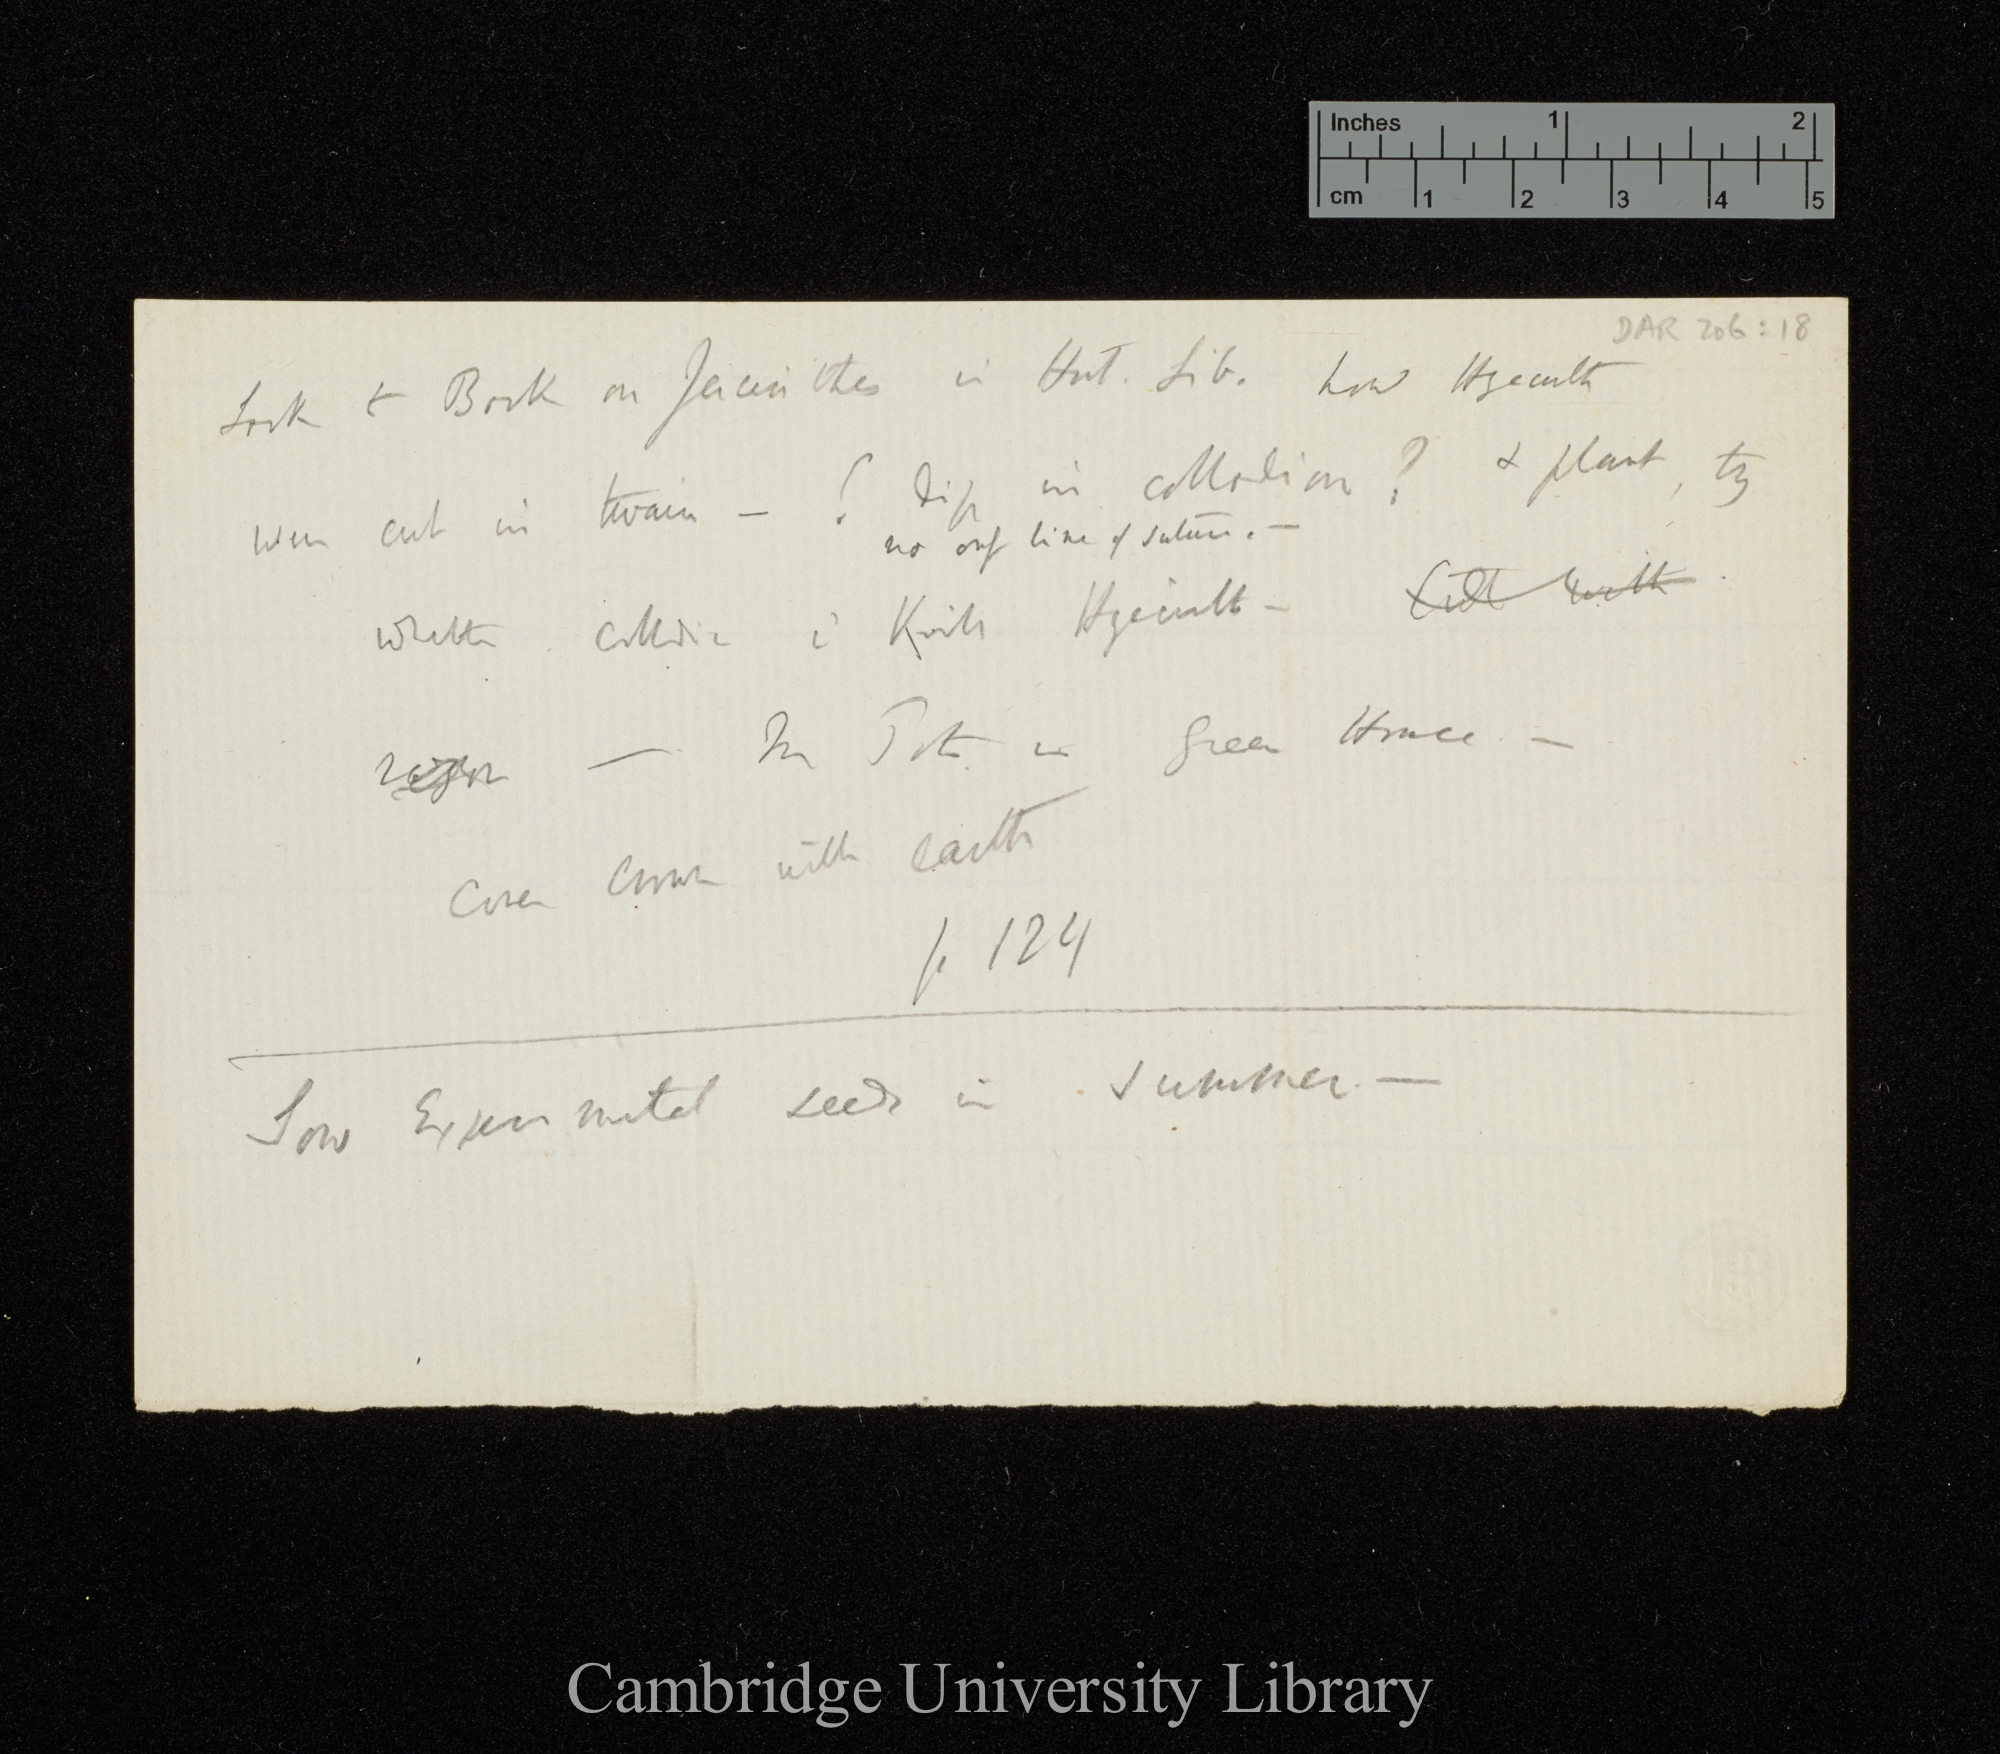 Inches 1 2
cm 1 2 3 4 5
DAR 206:18
Look to Book on Jacinthes in Hort. Lib. how Hyacinth
were cut in twain — ? Dip in collodion ? & plant, try
no only line of suture. —
whether collodion kills Hyacinth — Cut with
razor — In Pots in Green House. —
Cover crown with earth
p 124
Sow Experimental seeds in summer. —
Cambridge University Library